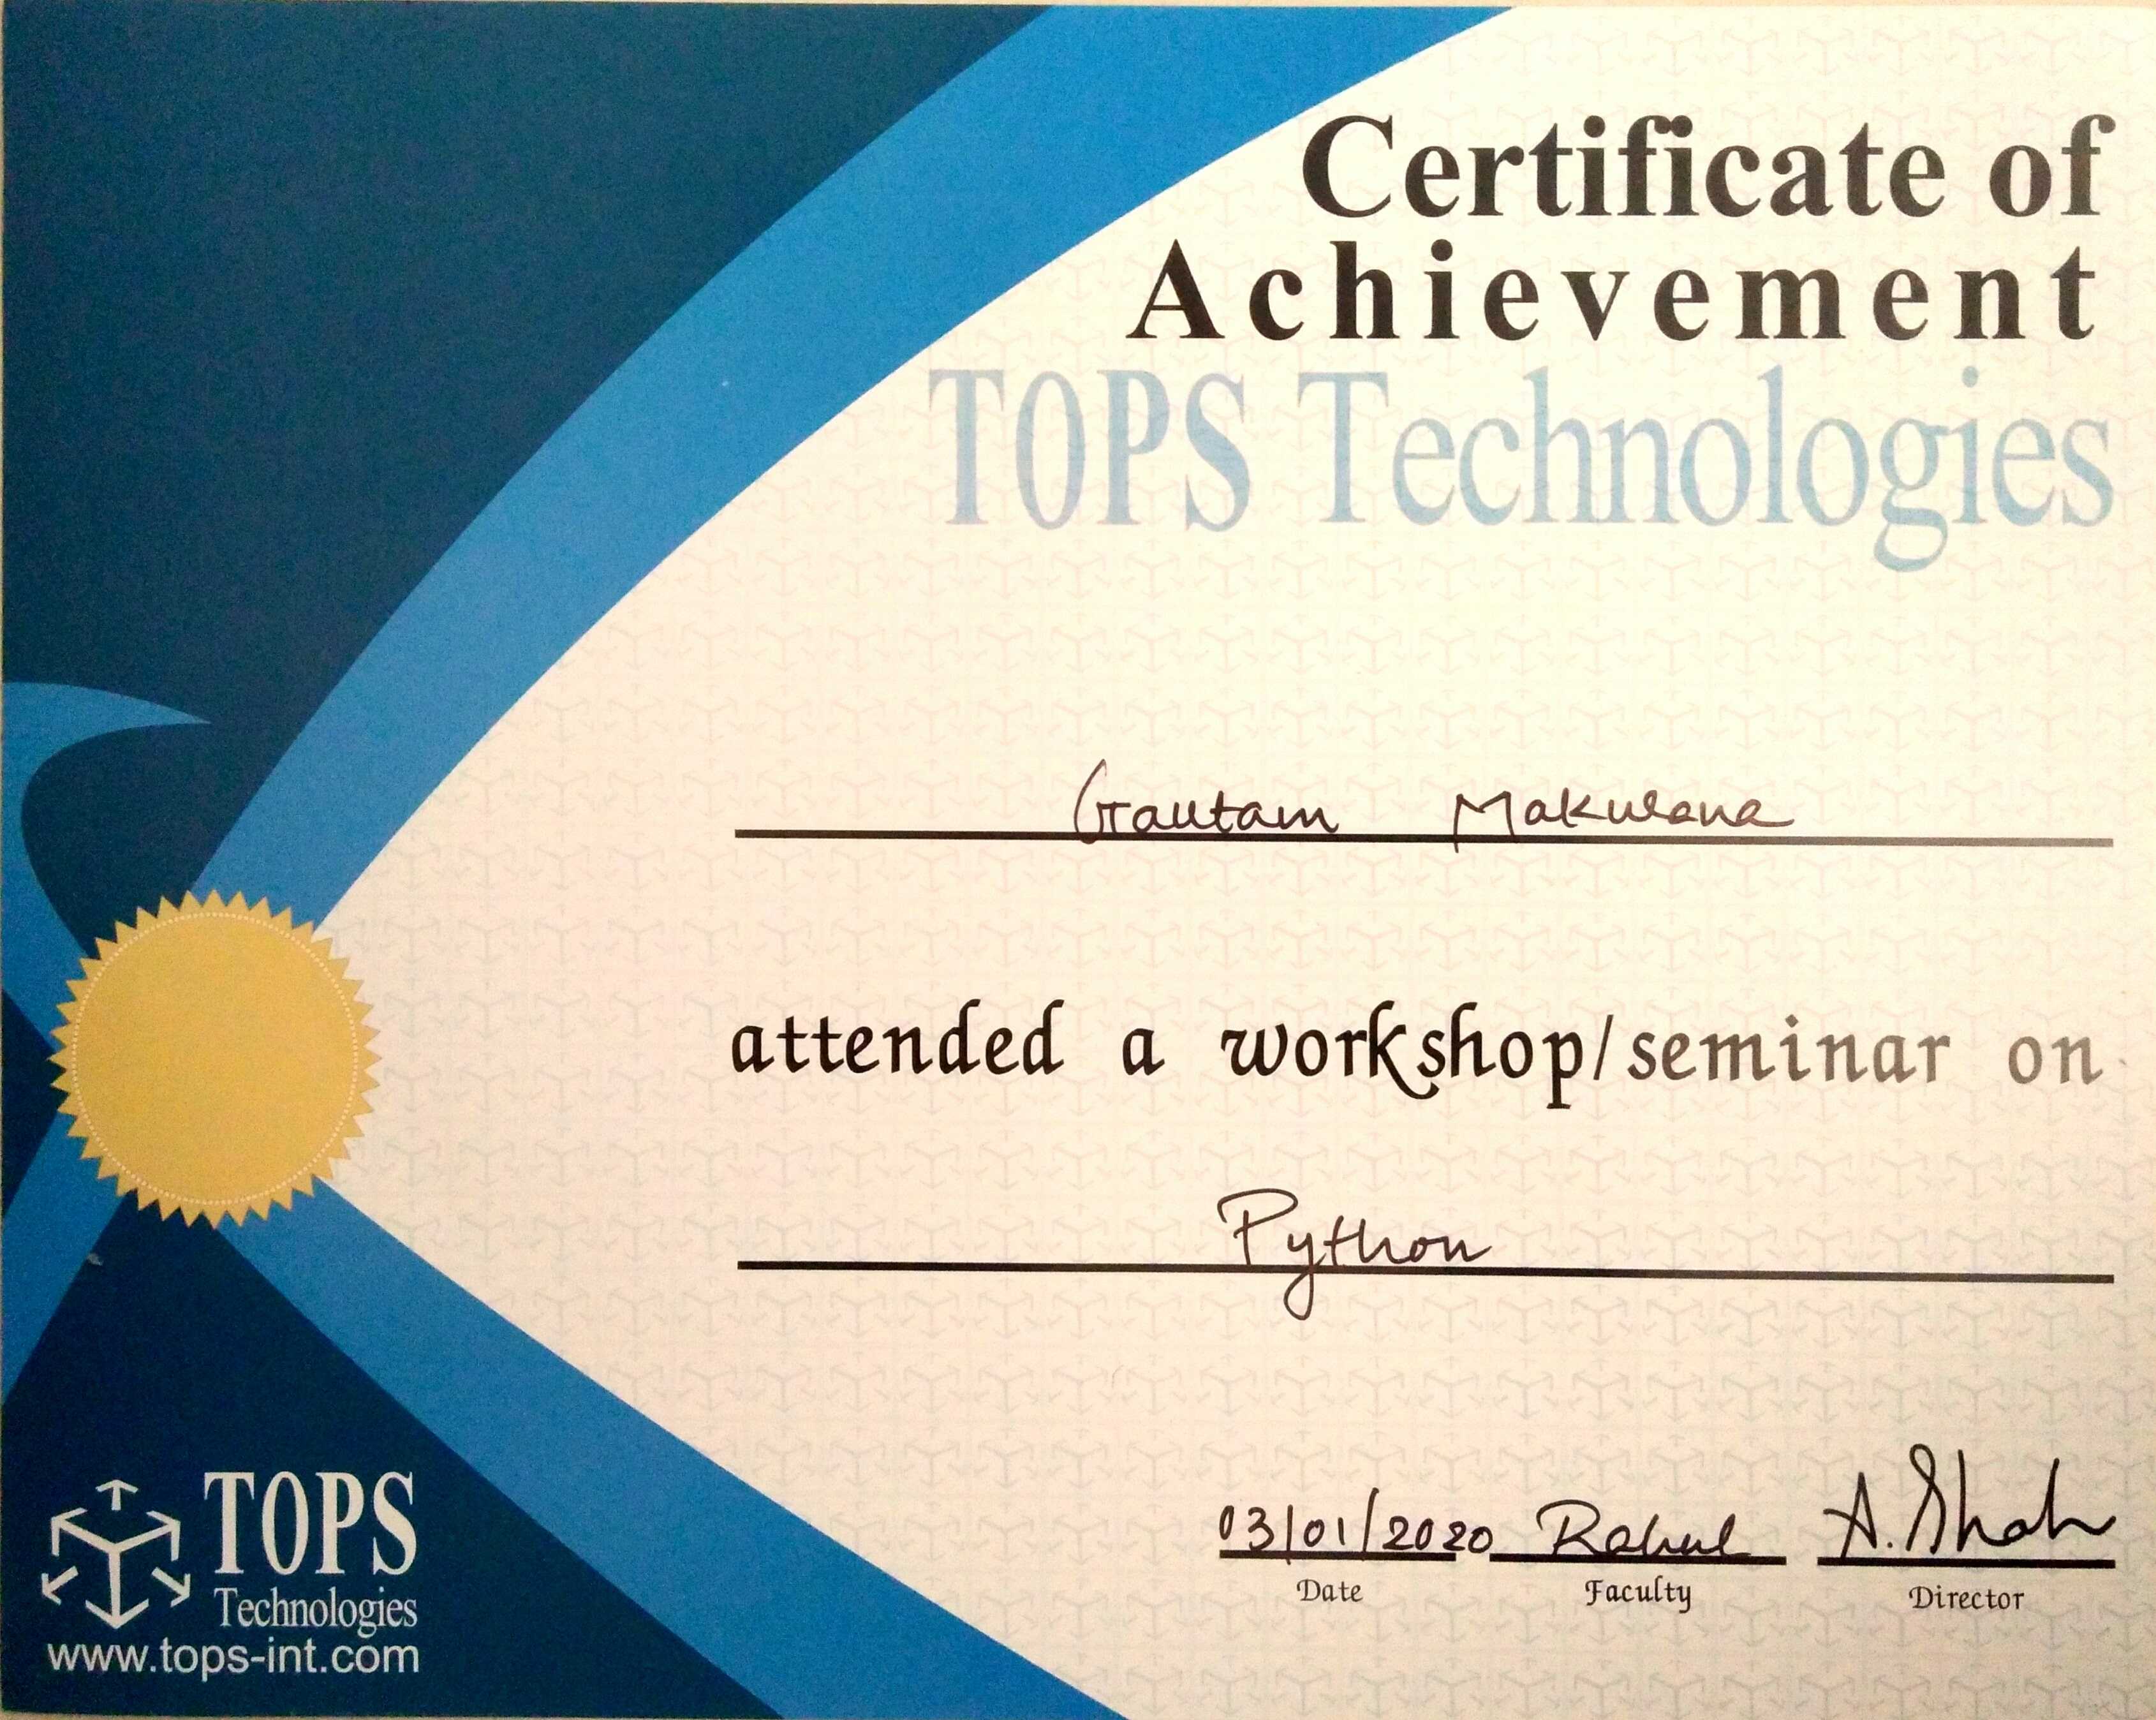 Certificate of
Achievement
TOPS Technologies
Gautam Makwana
attended a workshop/seminar on
Python
03/01/2020 Rahul A. Shah
Date Faculty Director
TOPS
Technologies
www.tops-int.com